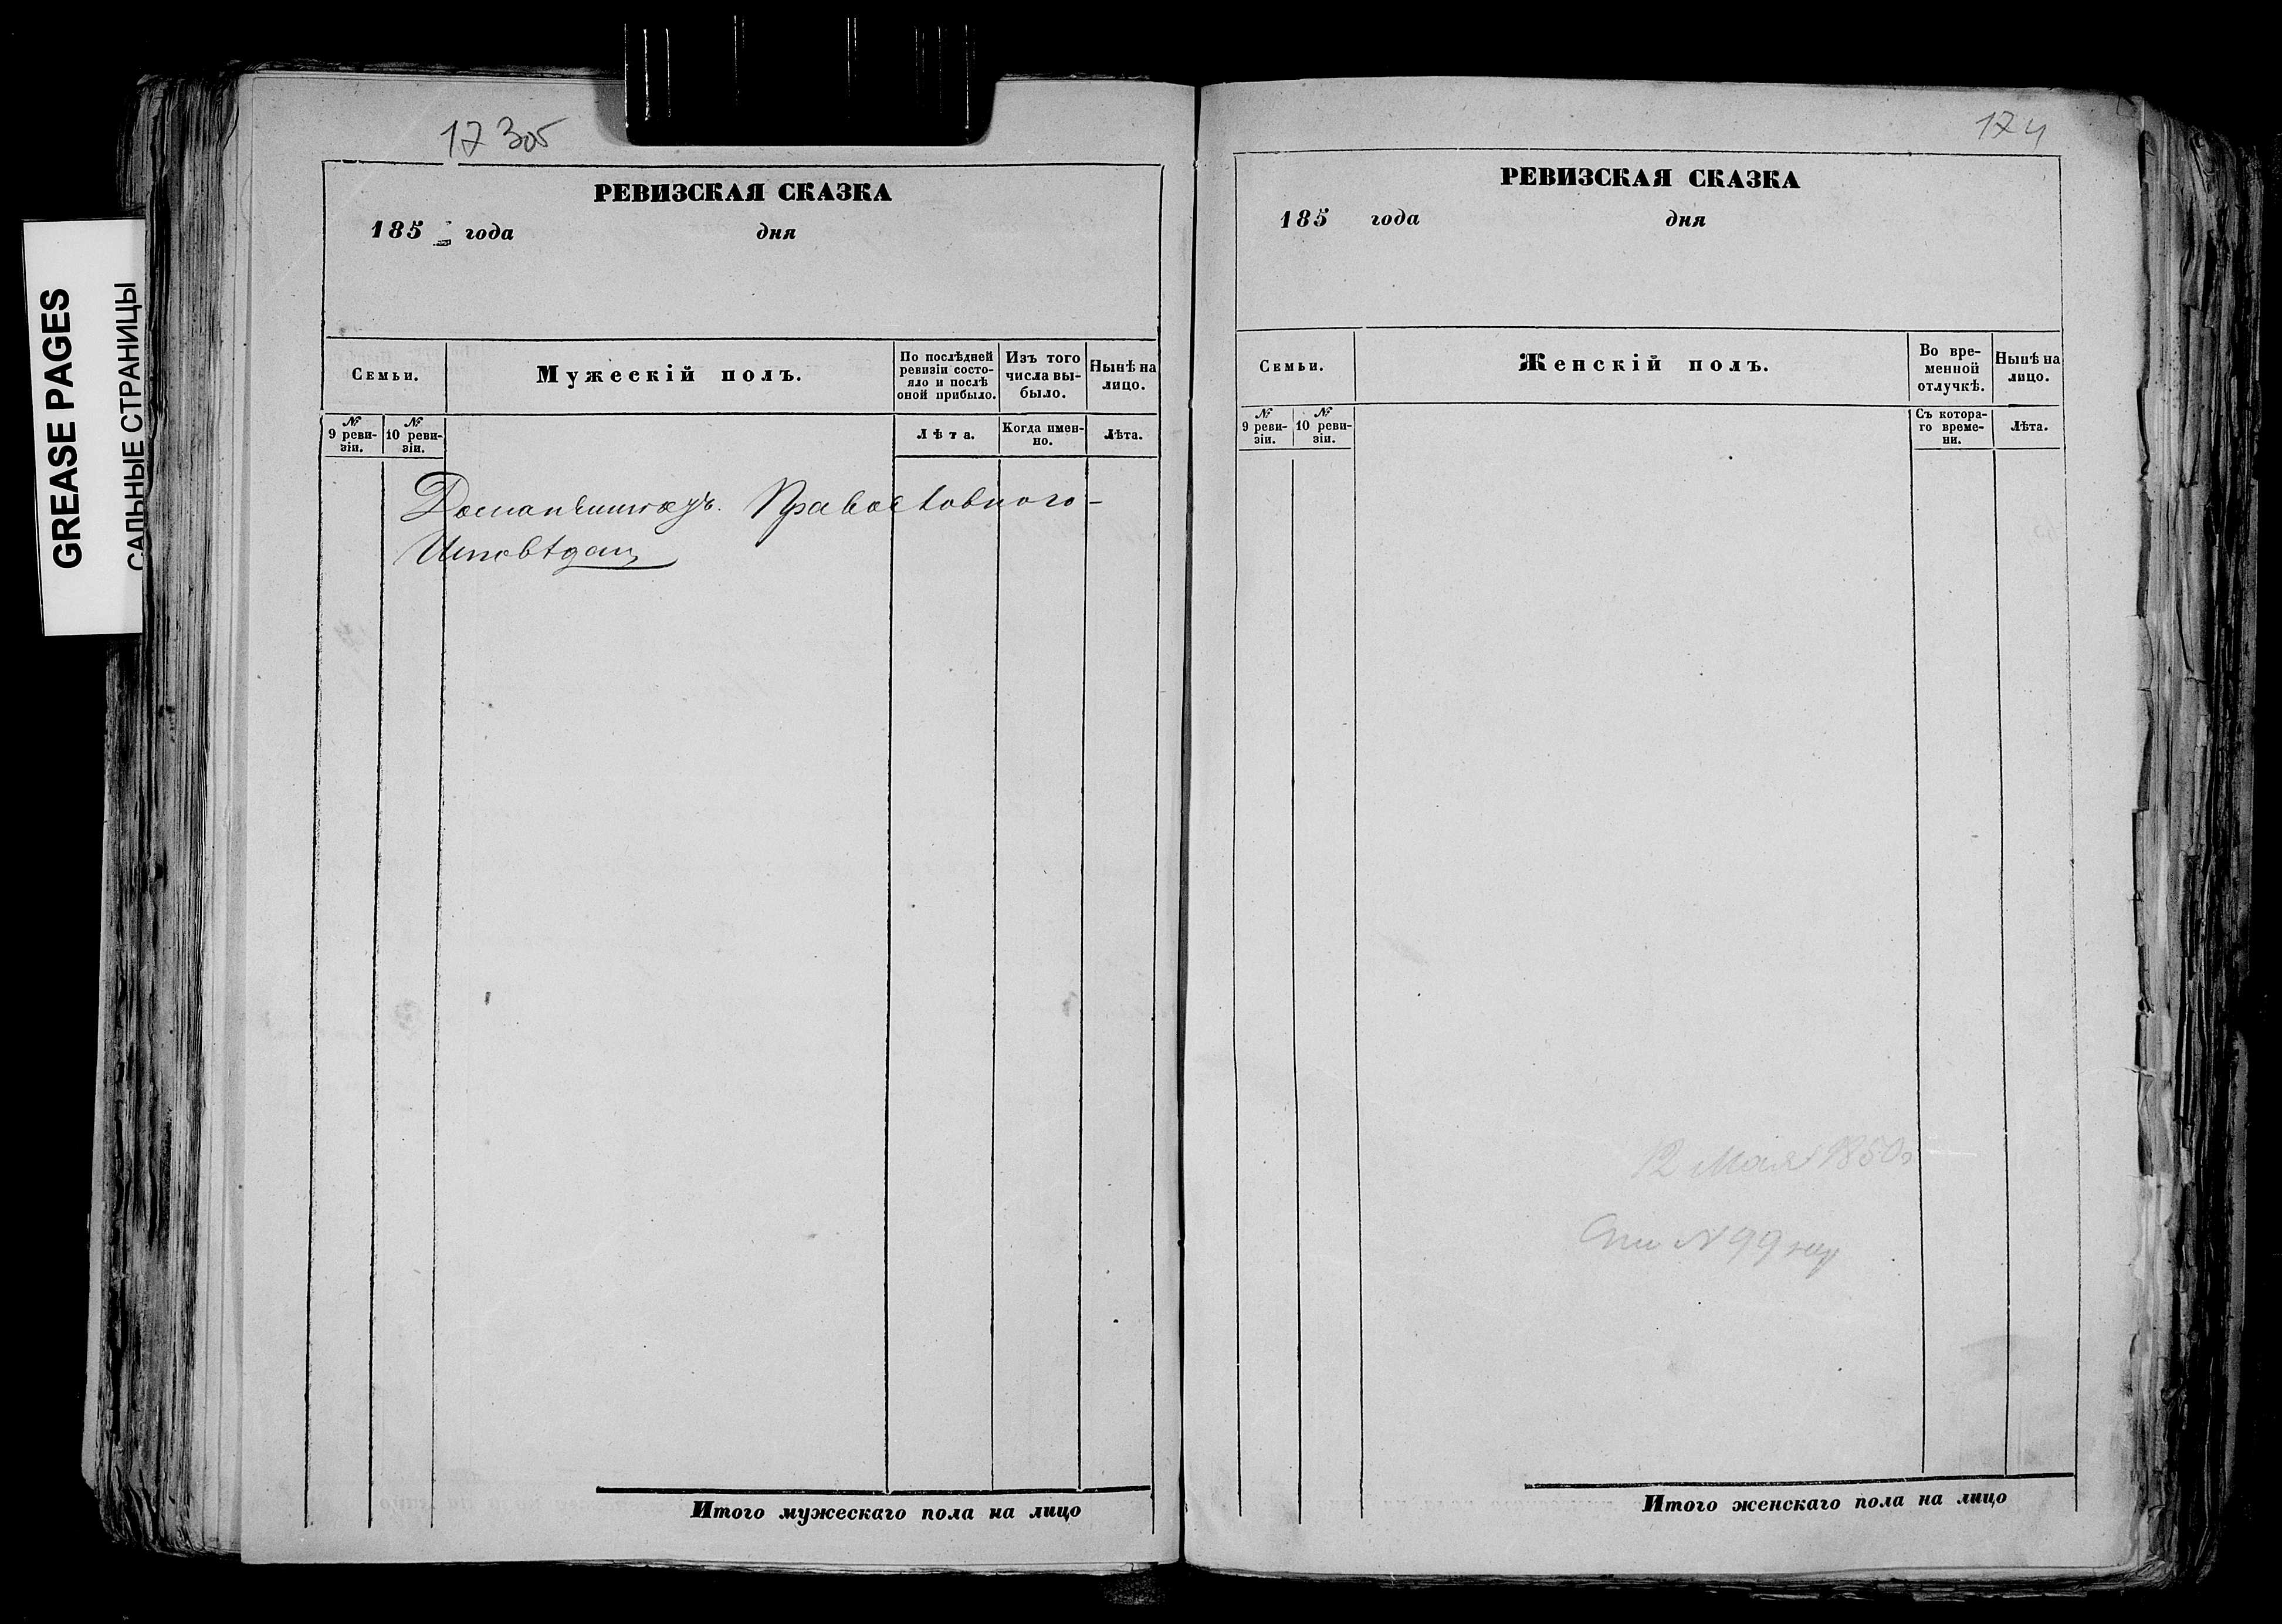 GREASE PAGES
САЛЬНЫЕ СТРАНИЦЫ
173об
РЕВИЗСКАЯ СКАЗКА
185 года дня
Семьи.
Мужескій полъ.
По послѣдней ревизіи состо-
яло и послѣ оной прибыло.
Изъ того числа вы-
было.
Нынѣ на лицо.
№ 9 реви-
зіи.
№ 10 реви-
зіи.
Лѣта.
Когда имен-
но.
Лѣта.
Православного
Итого мужескаго пола на лицо
174
РЕВИЗСКАЯ СКАЗКА
185 года дня
Семьи.
Женскій полъ.
Во вре-
менной
отлучкѣ.
Нынѣ на
лицо.
№ 9 реви-
зіи.
№ 10 реви-
зіи.
Съ котора-
го време-
ни.
Лѣта.
12 Мая 1850г
N 99
Итого женскаго пола на лицо